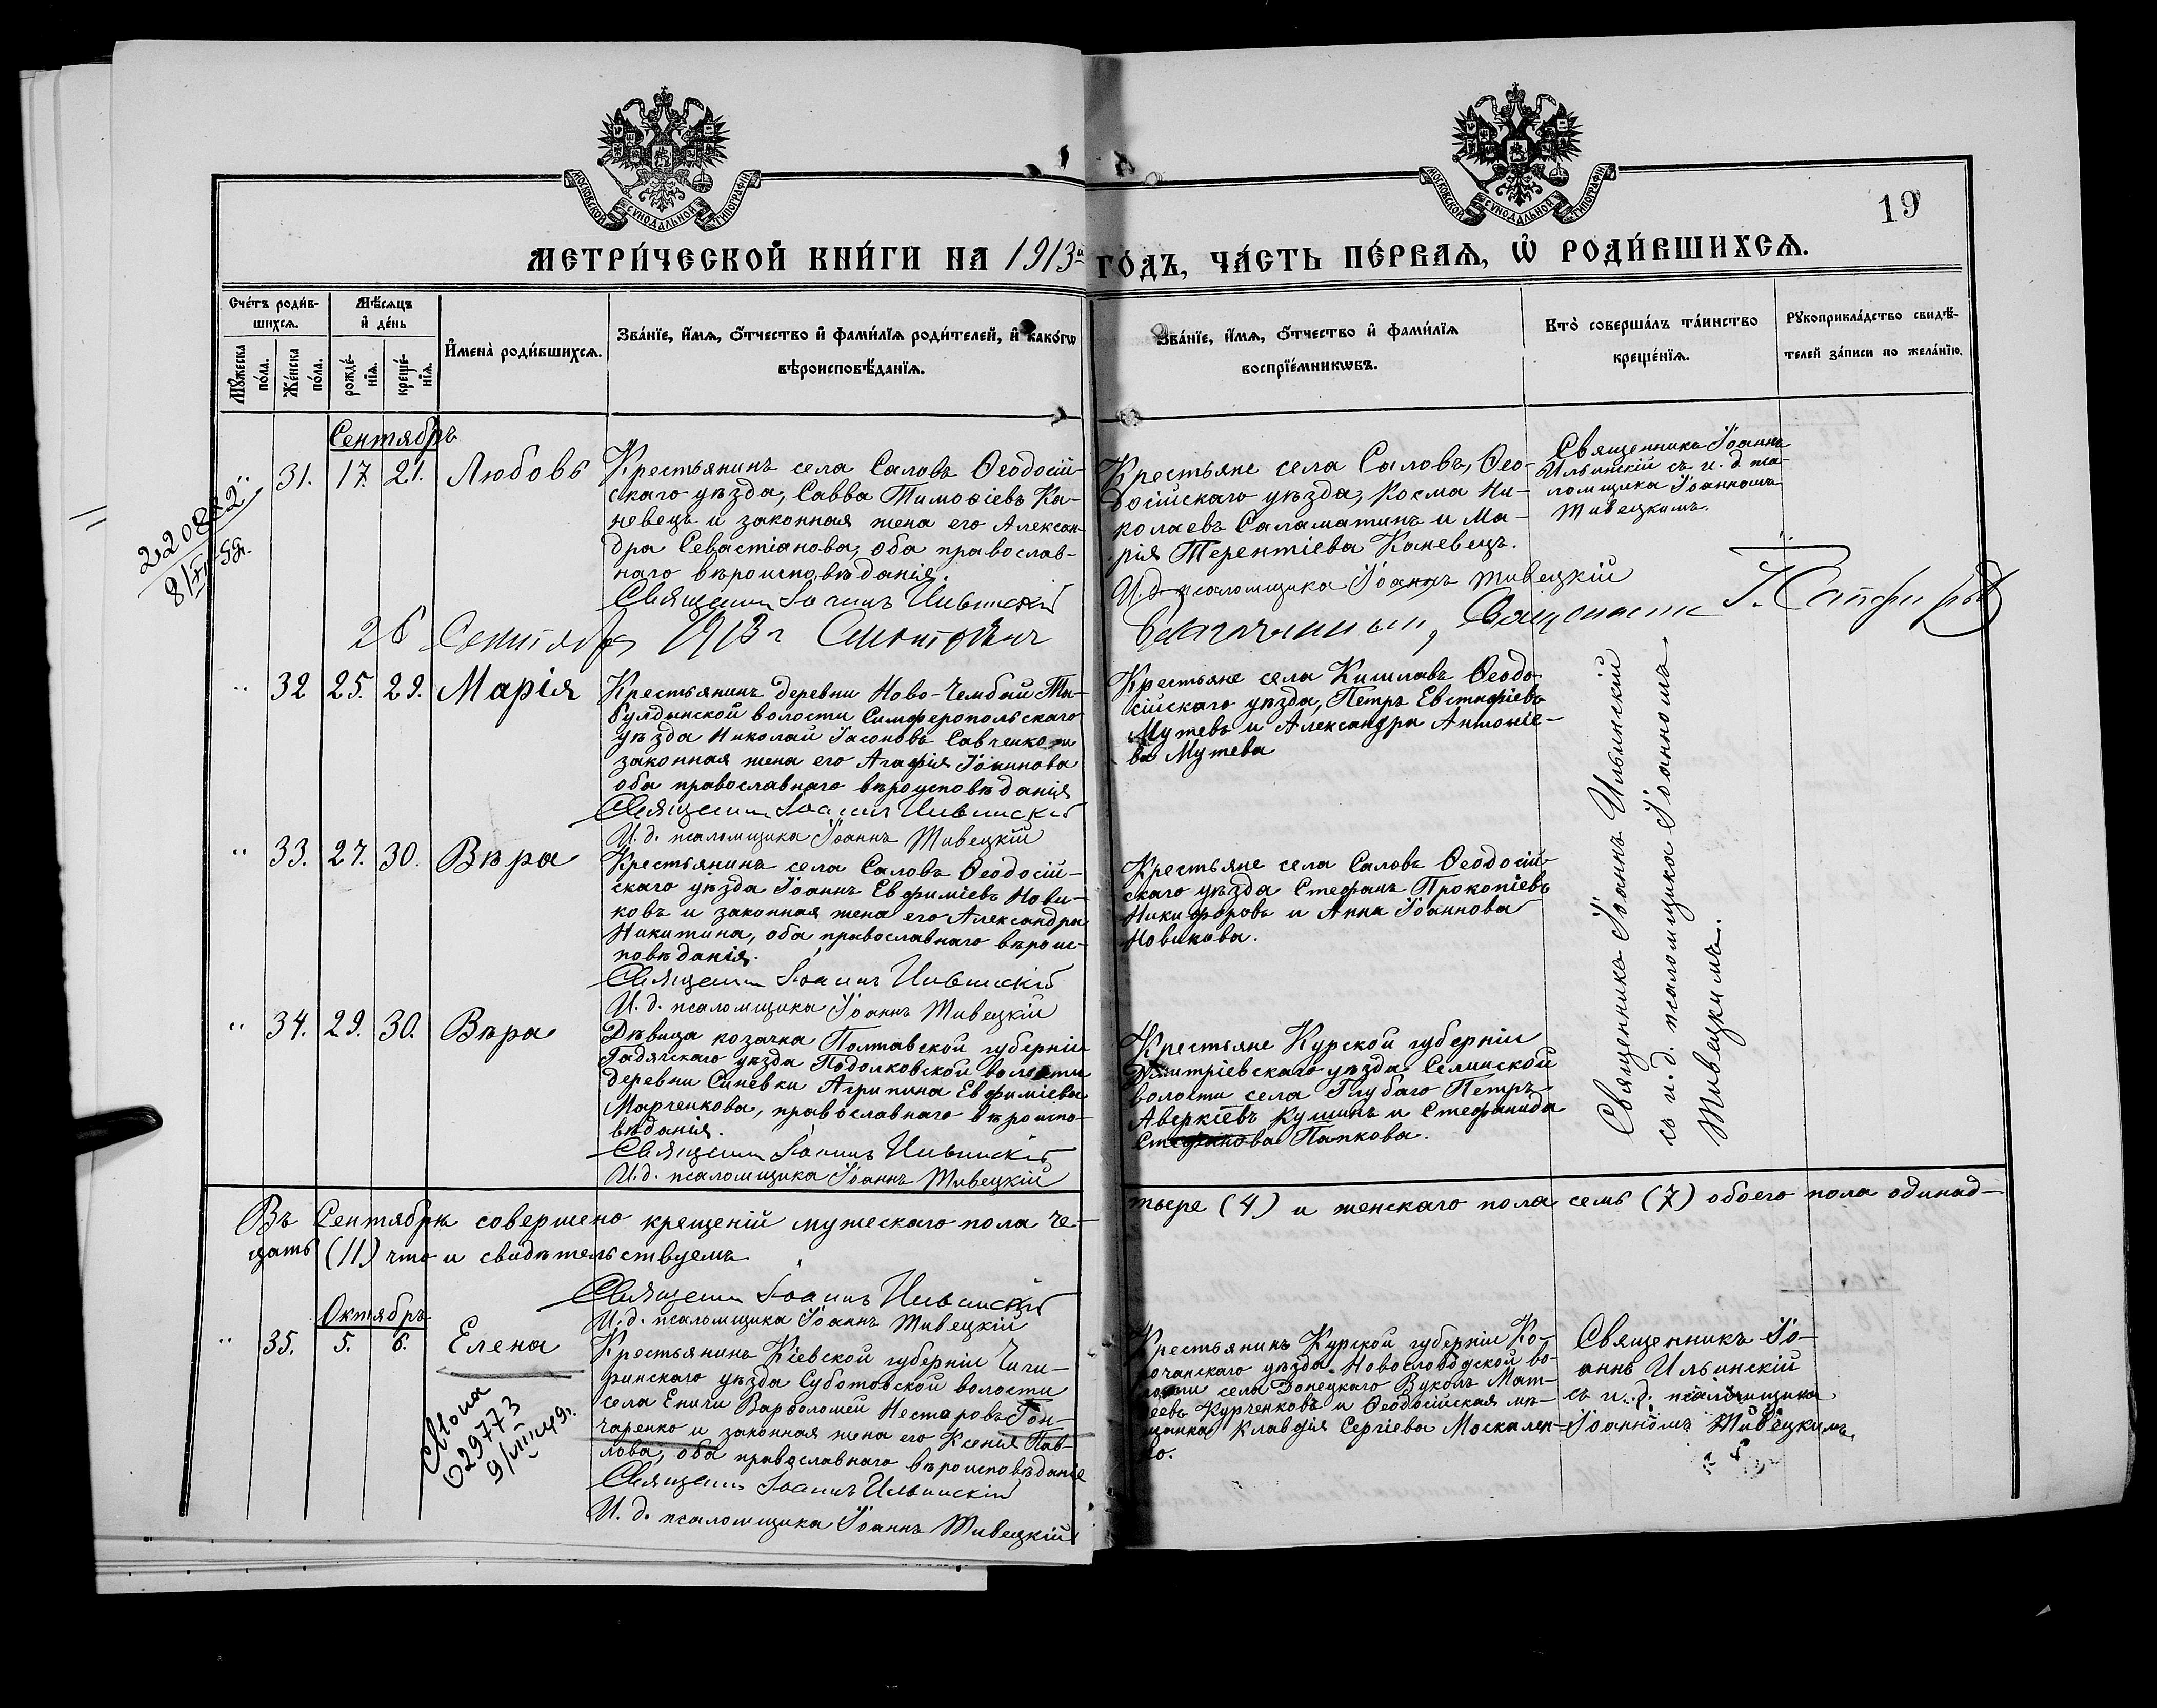 МОСКОВСКОЙ СУНОДАЛЬНОЙ ТИПОГРАФІИ
МОСКОВСКОЙ СУНОДАЛЬНОЙ ТИПОГРАФІИ
19
МЕТРИ́ЧЕСКОЙ КНИ́ГИ НА 1913й ГО́ДЪ, ЧА́СТЬ ПЕ́РВАѦ, Ѡ РОДИ́ВШИХСѦ.
Сче́тъ роди́в-
шихсѧ.
Мѣ́сѧцъ
и де́нь
Мꙋ́жеска
по́ла.
Же́нска
по́ла.
рожде́-
нїѧ.
креще́-
нїѧ.
Имена̀ роди́вшихсѧ.
Зва́нїе, и́мѧ, о́тчество и фами́лїѧ роди́телей, и како́гѡ
вѣроисповѣ́данїѧ.
Зва́нїе, и́мѧ, о́тчество и фами́лїѧ
воспрїе́мникѡвъ.
Кто̀ соверша́лъ та́инство
креще́нїѧ.
Рꙋкоприкла́дство свидѣ́-
телей за́писи по жела́нїю.
Сентябрь
" 31. 17. 21. Любовь
Крестьянинъ села Саловъ Ѳеодосій-
скаго уѣзда, Савва Тимоѳіевъ Ка-
невецъ и законная жена его Алексан-
дра Севастіанова, оба православ-
наго вѣроисповѣданія.
Священникъ Іоаннъ Ильинскій
Крестьяне села Саловъ, Ѳео-
досійскаго уѣзда, Косма Ни-
колаевъ Саламатинъ и Ма-
рія Терентіева Каневецъ.
И. д. псаломщика Іоаннъ Живецкій
Священникъ Іоаннъ
Ильинскій съ и. д. пса-
ломщика Іоанномъ
Живецкимъ.
220882
26 Сентября 1913 г Смотрѣнъ
Благочинный, Священникъ І. Сапфировъ
" 32 25. 29. Марія
Крестьянинъ деревни Ново-Чембай Та-
булдынской волости Симферопольскаго
уѣзда Николай Іасоновъ Савченко и
законная жена его Агафія Іоаннова
оба православнаго вѣроисповѣданія
Священникъ Іоаннъ Ильинскій
И. д. псаломщика Іоаннъ Живецкій
Крестьяне села Кишлавъ Ѳеодо-
сійскаго уѣзда, Петръ Евстафіевъ
Мутевъ и Александра Антоніе-
ва Мутева
" 33. 27. 30. Вѣра
Крестьянинъ села Саловъ Ѳеодосій-
скаго уѣзда Іоаннъ Евфиміевъ Нови-
ковъ и законная жена его Александра
Никитина, оба православнаго вѣроис-
повѣданія.
Священникъ Іоаннъ Ильинскій
И. д. псаломщика Іоаннъ Живецкій
Крестьяне села Саловъ Ѳеодосій-
скаго уѣзда Стефанъ Прокопіевъ
Никифоровъ и Анна Іоаннова
Новикова.
" 34. 29. 30. Вѣра
Дѣвица козачка Полтавской губерніи
Гадячскаго уѣзда Подолковской волости
деревни Синевки Агрипина Евфиміева
Марченкова, православнаго вѣроиспо-
вѣданія.
Священникъ Іоаннъ Ильинскій
И. д. псаломщика Іоаннъ Живецкій
Крестьяне Курской губерніи
Дмитріевскаго уѣзда Селинской
волости села Глубаго Петръ
Аверкіевъ Кушинъ и Стефанида
Стефанова Папкова.
Священникъ Іоаннъ Ильинскій
съ и. д. псаломщика Іоанномъ
Живецкимъ.
Въ Сентябрѣ совершено крещеній мужескаго пола че-
тыре (4) и женскаго пола семь (7) обоего пола одинад-
цать (11) что и свидѣтельствуемъ
Священникъ Іоаннъ Ильинскій
И. д. псаломщика Іоаннъ Живецкій
Октябрь
" 35. 5. 6. Елена
629773
Крестьянинъ Кіевской губерніи Чиги-
ринскаго уѣзда Суботовской волости
села Еничи Варѳоломей Нестеровъ Гон-
чаренко и законная жена его Ксенія Пав-
лова, оба православнаго вѣроисповѣданія
Священникъ Іоаннъ Ильинскій
И. д. псаломщика Іоаннъ Живецкій
Крестьянинъ Курской губерніи Ко-
рочанскаго уѣзда Новослободской во-
лости села Донецкаго Вуколъ Мат-
ѳеевъ Курченковъ и Ѳеодосійская мѣ-
щанка Клавдія Сергіева Москален-
ко.
Священникъ Іо-
аннъ Ильинскій
съ и. д. псаломщика
Іоанномъ Живецкимъ.